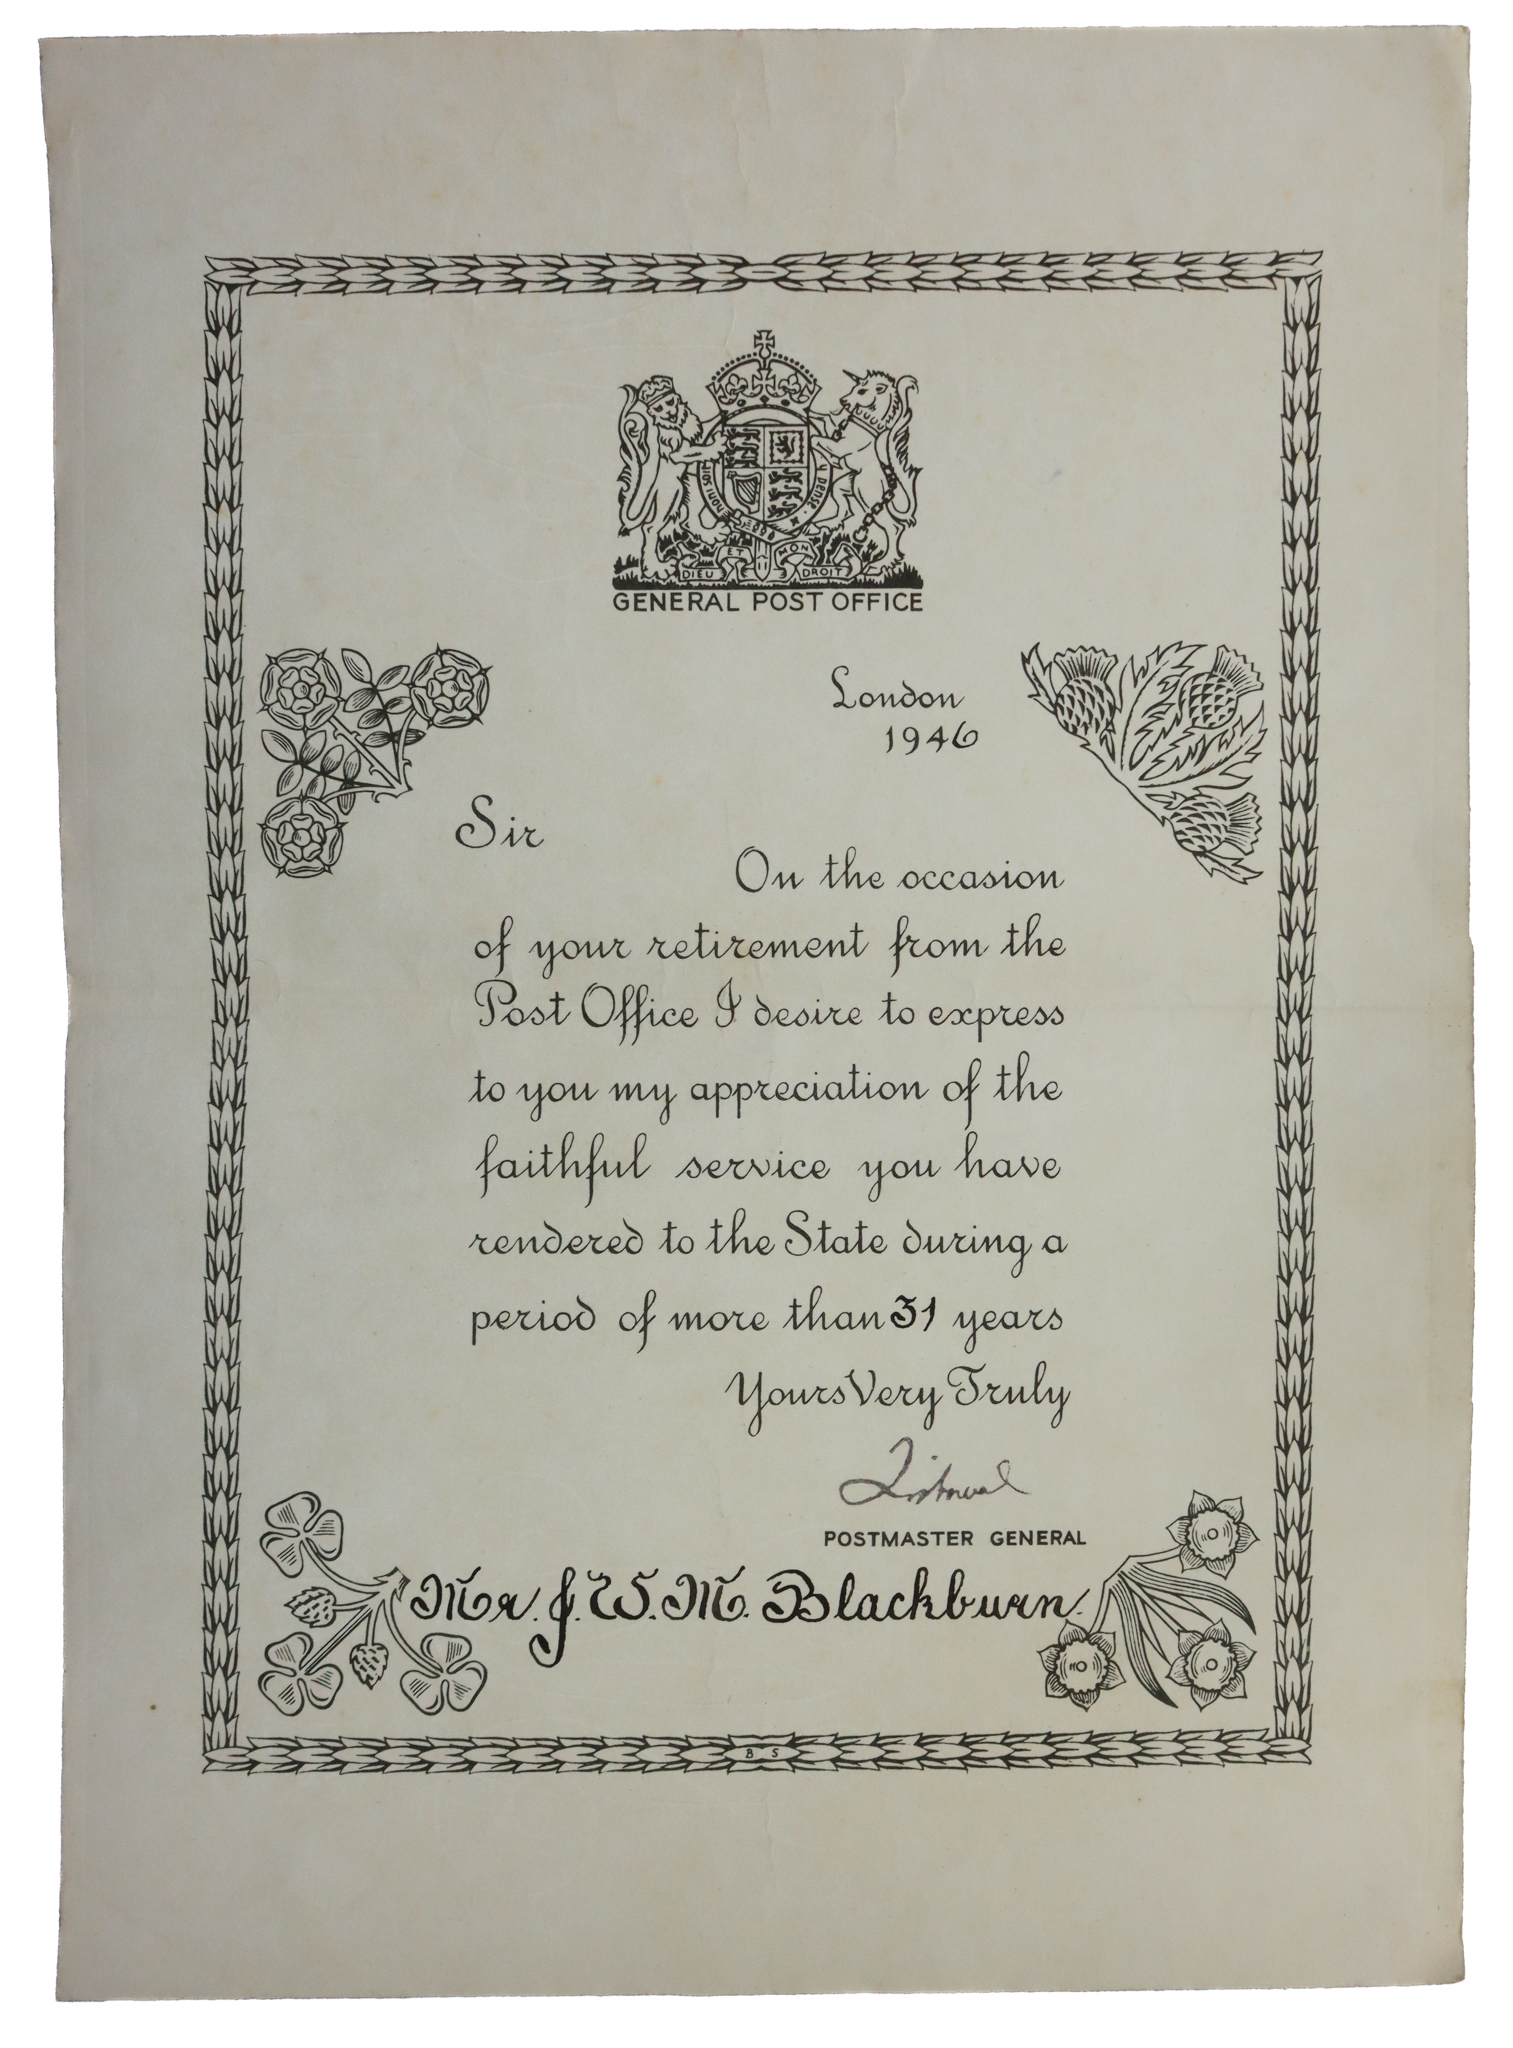 HONI SOIT
Y PENSE
DIEU ET MON DROIT
GENERAL POST OFFICE
London
1946
Sir
On the occasion
of your retirement from the
Post Office I desire to express
to you my appreciation of the
faithful service you have
rendered to the State during a
period of more than 31 years
Yours Very Truly
Listowel
POSTMASTER GENERAL
Mr. J. W. M. Blackburn.
B S